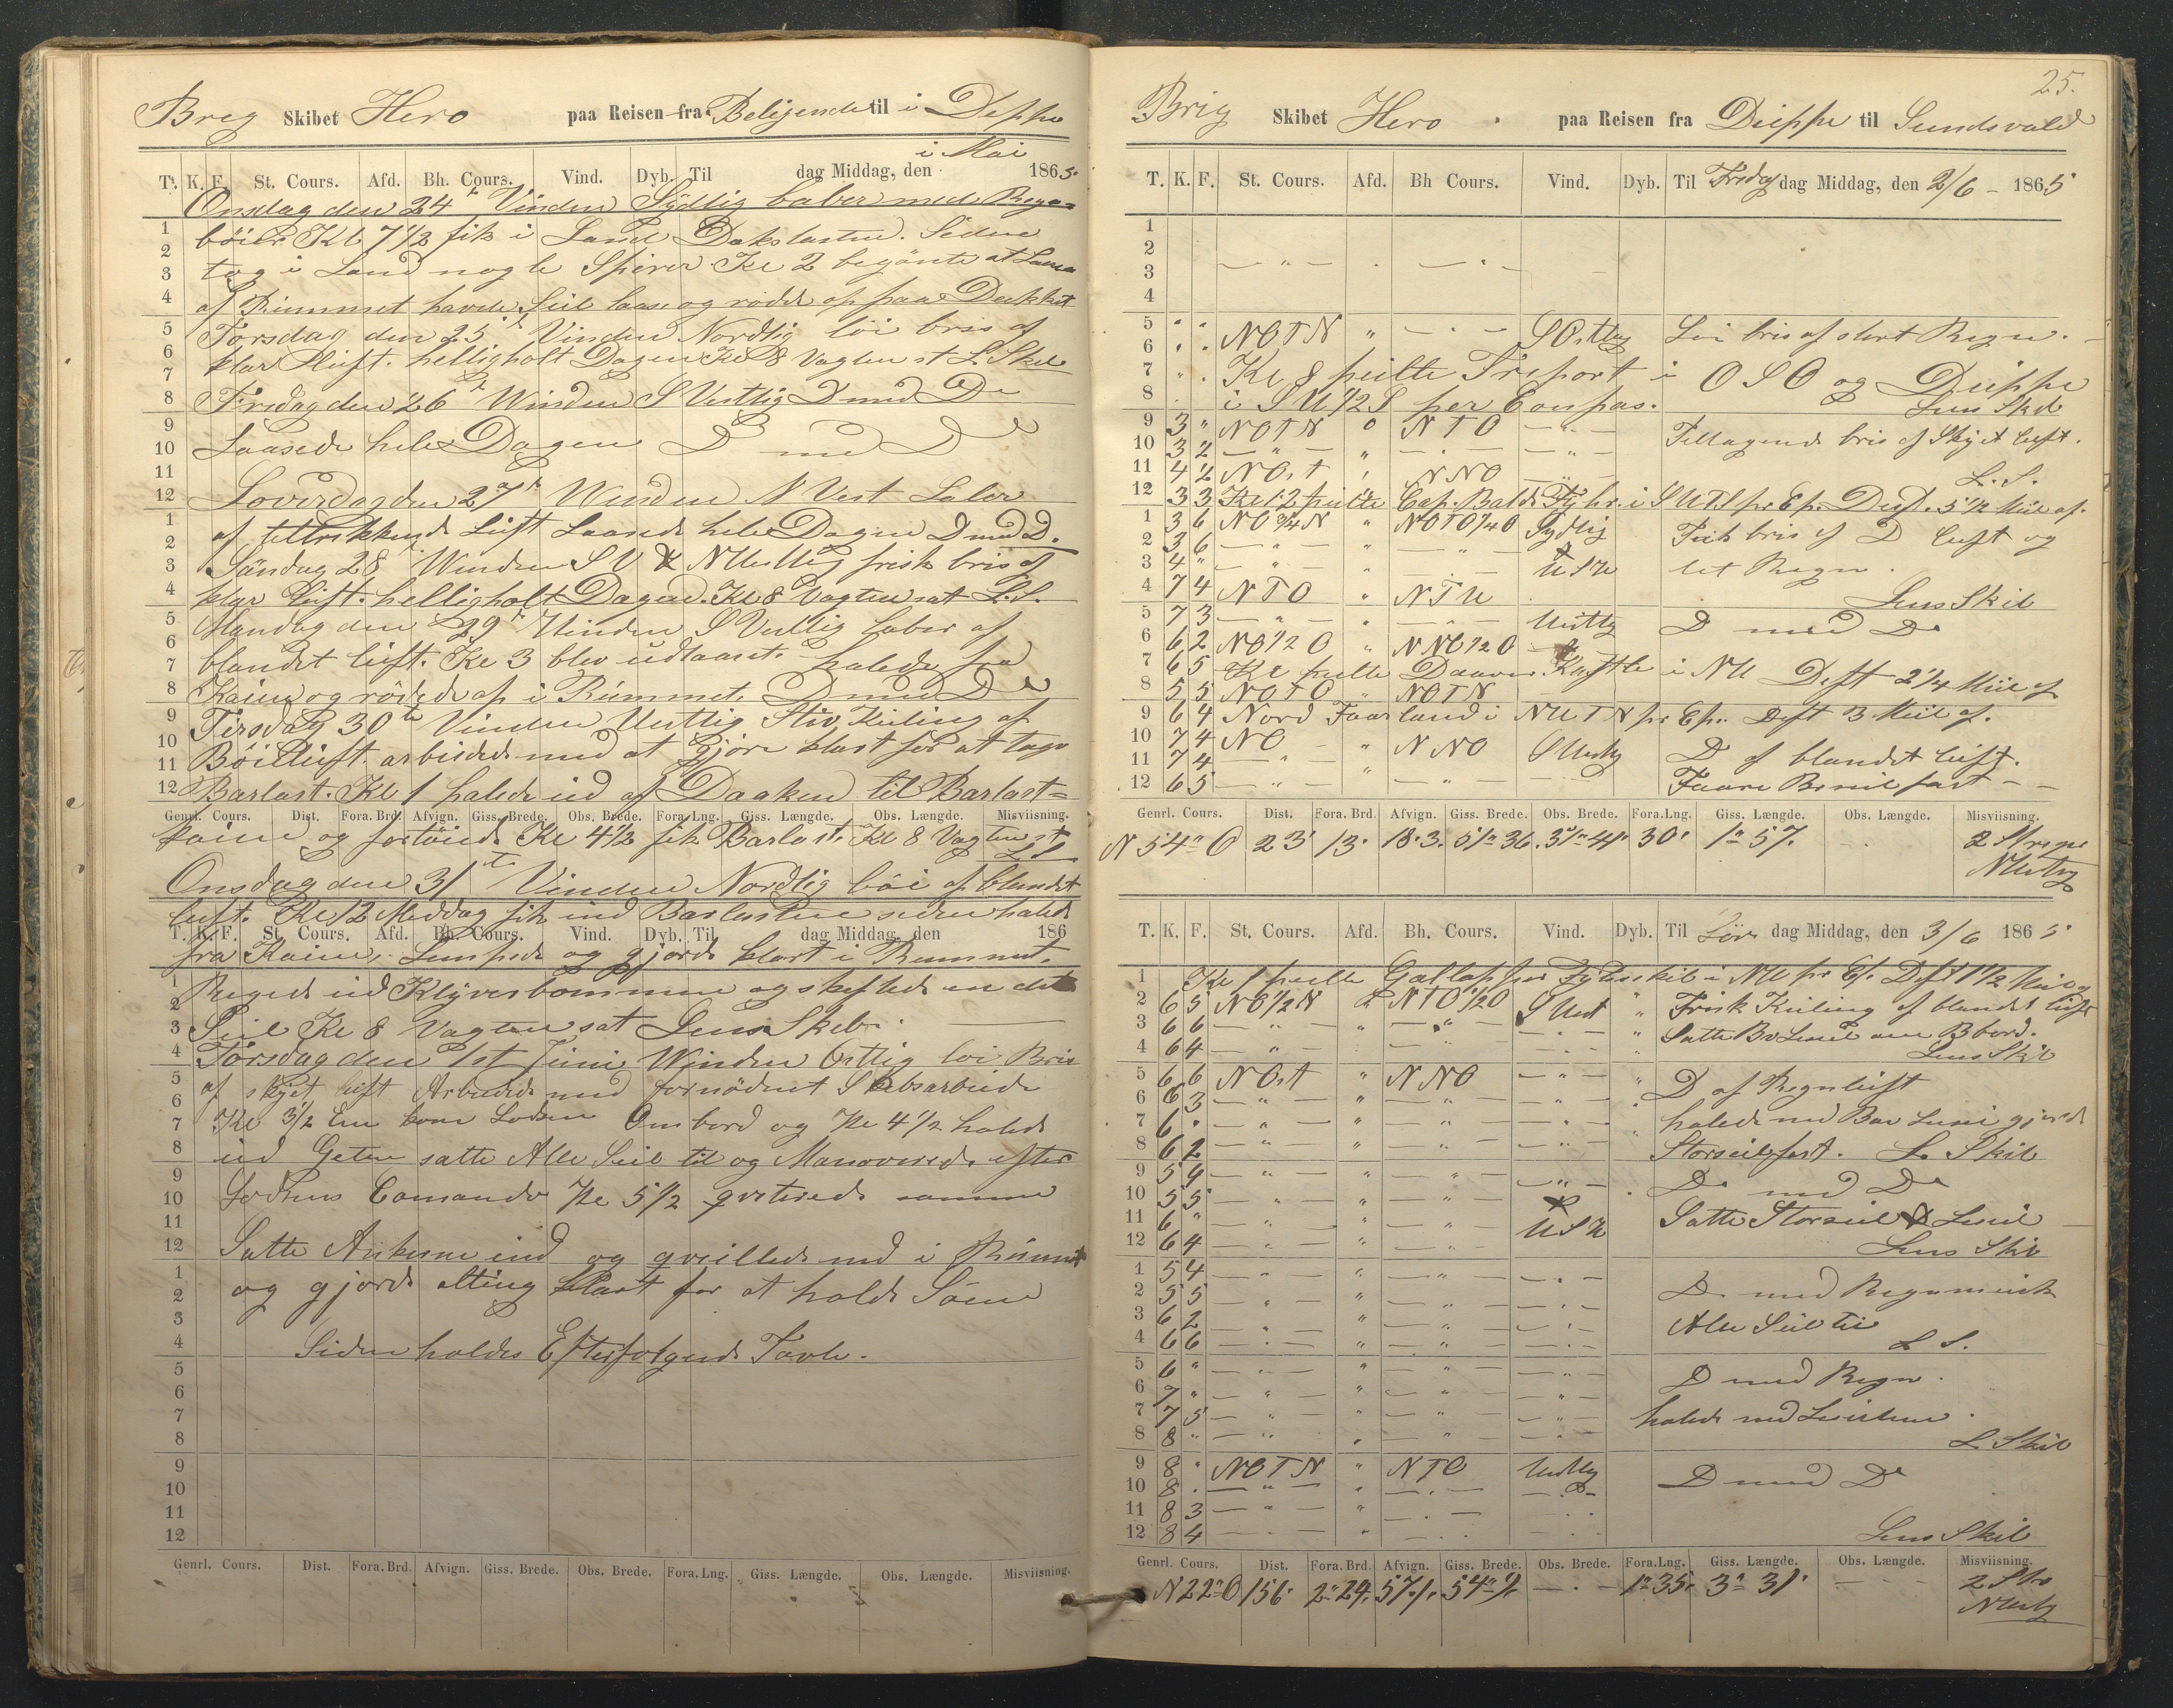 Breg Skibet Hero paa Reisen fra Beligende til i Deppe
i Mai
T. K. F. St. Cours. Afd. Bh. Cours. Vind. Dyb. Til dag Middag, den 1865.
Onsdag den 24 Vinden Sydlig laber med Regn=
böier Kl 7 1/2 fik i Land Dakslasten. Siden
tog i Land nogle Spirer Kl 2 begönte at Laasse
af Rummet havde Seil laase og rödde op paa Dækket
Torsdag den 25 Vinden Nordlig löi bris af
klar Luft. helligholt Dagen Kl 8 Vagten st L. Skib
Fredag den 26 Winden S Vestlig D med Do
Laasede hele Dagen D med D
Loverdag den 27 Winden N Vest Laber
af tiltrækkende Luft Laasede hele Dagen D med D.
Söndag 28 Winden S V & N Vestlig frisk bris af
klar luft. helligholt Dagen. Kl 8 Vagten sat L.S.
Mandag den 29 Vinden S Vestlig laber af
blandet luft. Kl 3 blev udlaaset. halede fra
Kaien og rödede op i Rummet. D med Do
Tirsdag 30te Vinden Vestlig Stiv Kuling af
Böi Luft. arbeidede med at Gjöre klart for at tage
Barlast. Kl 1 halede ud af Dokken til Barlast=
Genrl. Cours. Dist. Fora. Brd. Afvign. Giss. Brede. Obs. Brede. Fora. Lng. Giss. Længde. Obs. Længde. Misviisning.
kaien og fortöiede Kl 4 1/2 fik Barlast. Kl 8 Vagten st
LS
Onsdag den 31 Vinden Nordlig böi af blandet
luft. Kl 12 Meddag fik ind Barlasten siden halede
T. K. F. St. Cours. Afd. Bh. Cours. Vind. Dyb. Til dag Middag, den 186
fra Kaien. Lempede og gjorde klart i Rummet.
Regede ud Klyverbommen og skeftede en del
Seil Kl 8 Vagten sat Lens Skib.
Torsdag den 1st Juni Winden Östlig löi Bris
af skyet luft Arbeidede med fornödent Skibsarbeide
Kl 3 1/2 Em kom Lodsen Ombord og Kl 4 1/2 halede
ud Geten satte Alle Seil til og Manoverede efter
Lodsens Comando Kl 5 1/2 qviterede samme
Satte Ankerne ind og qveillede ned i Rummet
og gjorde alting klart for at holde Söen
Siden holdes Efterfölgende Tavle.
Genrl. Cours. Dist. Fora. Brd. Afvign. Giss. Brede. Obs. Brede. Fora. Lng. Giss. Længde. Obs. Længde. Misviisning.
25.
Brig Skibet Hero . paa Reisen fra Dieppe til Sundsvald
T. K. F. St. Cours. Afd. Bh Cours. Vind. Dyb. Til Fredag dag Middag, den 2/6 - 1865
1
2
3
4
5 " " NOTN " S Ostlig Löi bris af stort Regn.
6
7 Kl 8 peilte Treport i OSO og Dieppe
8 i SV 1/2 S per Compas. Lens Skib
9 3 " NOTN 0 NTO Tiltagende bris af Skyet luft.
10 3 2 — " — "
11 4 2 NOst " NNO L. S.
12 3 3 Kl 12 peilte Cap. Bald Fyhr. i SVTS pr Cp. Dist. 5 1/2 Mil af.
1 3 6 NO 3/4 N " NOTO 1/4 O Sydlig Frisk bris af D luft og
2 3 6 — " — "
3 4 " — " — " VSV let Regn.
4 7 4 NTO " NTV Lens Skib
5 7 3 — " — " Vestlig D med Do
6 6 2 NO 1/2 O " NNO 1/2 O
7 6 5 Kl peilte Daaver Kastle i NV Dist 2 1/4 Mil af
8 5 5 NOTO " NOTN
9 6 4 Nord Faarland i NVTN pr Cp. Dist 3 Mil af.
10 7 4 NO " NNO S Vestlig D af blandet luft.
11 7 4 — " — "
12 6 5 — " — Faare B seil fast —
Genrl. Cours. Dist. Fora. Brd. Afvign. Giss. Brede. Obs. Brede. Fora. Lng. Giss. Længde. Obs. Længde. Misviisning.
N 54° O 23 13. 18.3. 51° 36. 51° 41. 30' 1° 57. 2 Strege
NVestlig
T. K. F. St. Cours. Afd. Bh. Cours. Vind. Dyb. Til Löver dag Middag, den 3/6 1865
1 Kl 1 peilte Gallaper Fyrskib i NV pr Cp. Dist 1 1/2 Mil af
2 6 5 NO 1/2 N " NTO 1/2 O S Vest " Frisk Kuling af blandet luft
3 6 6 — " — " Satte Br Leseil om Bbord.
4 6 4 — " — " Lens Skib
5 6 6 NOst " NNO — " — D af Regnluft
6 6 3 — " — "
7 6 " — " — " halede ned Br Leseil gjorde
8 6 2 — " — " Storseil fast. L. Skib
9 5 4 — " — " Do med Do
10 5 5 — " — "
11 6 " — " — " VSV Satte Storseil & Leseil
12 6 4 — " — " Lens Skib
1 5 4 — " — "
2 5 5 — " — " D. med Regnmörk
3 6 2 — " — " Alle Seil til
4 6 6 — " — " L S.
5 6 " — " — " D med Regn.
6 7 " — " — "
7 7 5 — " — " halede ned Leseilene.
8 8 " — " — " L Skib
9 8 " NOTN " NTO Vestlig D med Do
10 8 . — " — "
11 8 3 — " — "
12 8 4 — " — " Lens Skib
Genrl. Cours. Dist. Fora. Brd. Afvign. Giss. Brede. Obs. Brede. Fora. Lng. Giss. Længde. Obs. Længde. Misviisning.
N 22° O 156. 2° 24. 57'. 54° 1'. — . — 1° 35. 3° 31. — — 2 Str
NVestlig